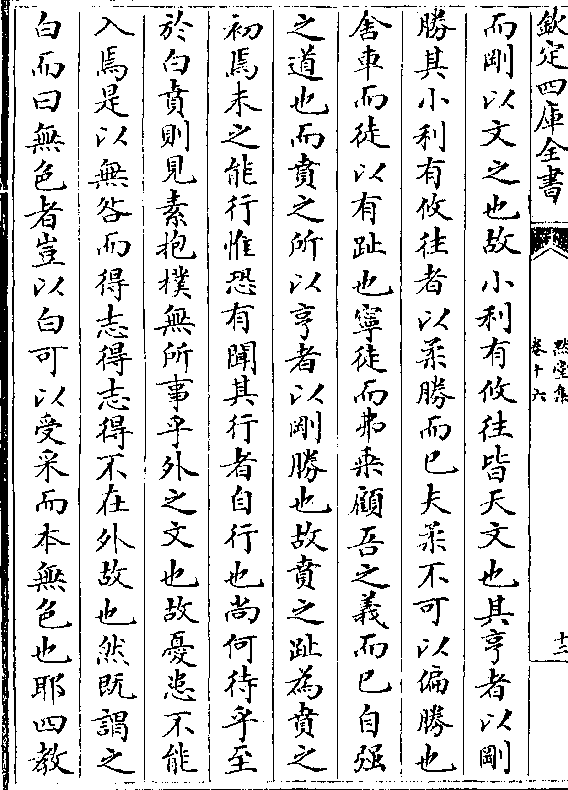 欽定四庫全書
默堂集
卷十六
十三
而剛以文之也故小利有攸往皆天文也其亨者以剛
勝其小利有攸往者以柔勝而已夫柔不可以偏勝也
舍車而徒以有趾也寧徒而弗乗顧吾之義而已自强
之道也而賁之所以亨者以剛勝也故賁之趾為賁之
初焉未之能行惟恐有聞其行者自行也尚何待乎至
於白賁則見素抱樸無所事乎外之文也故憂患不能
入焉是以無咎而得志得志得不在外故也然既謂之
白而曰無色者豈以白可以受采而本無色也耶四教